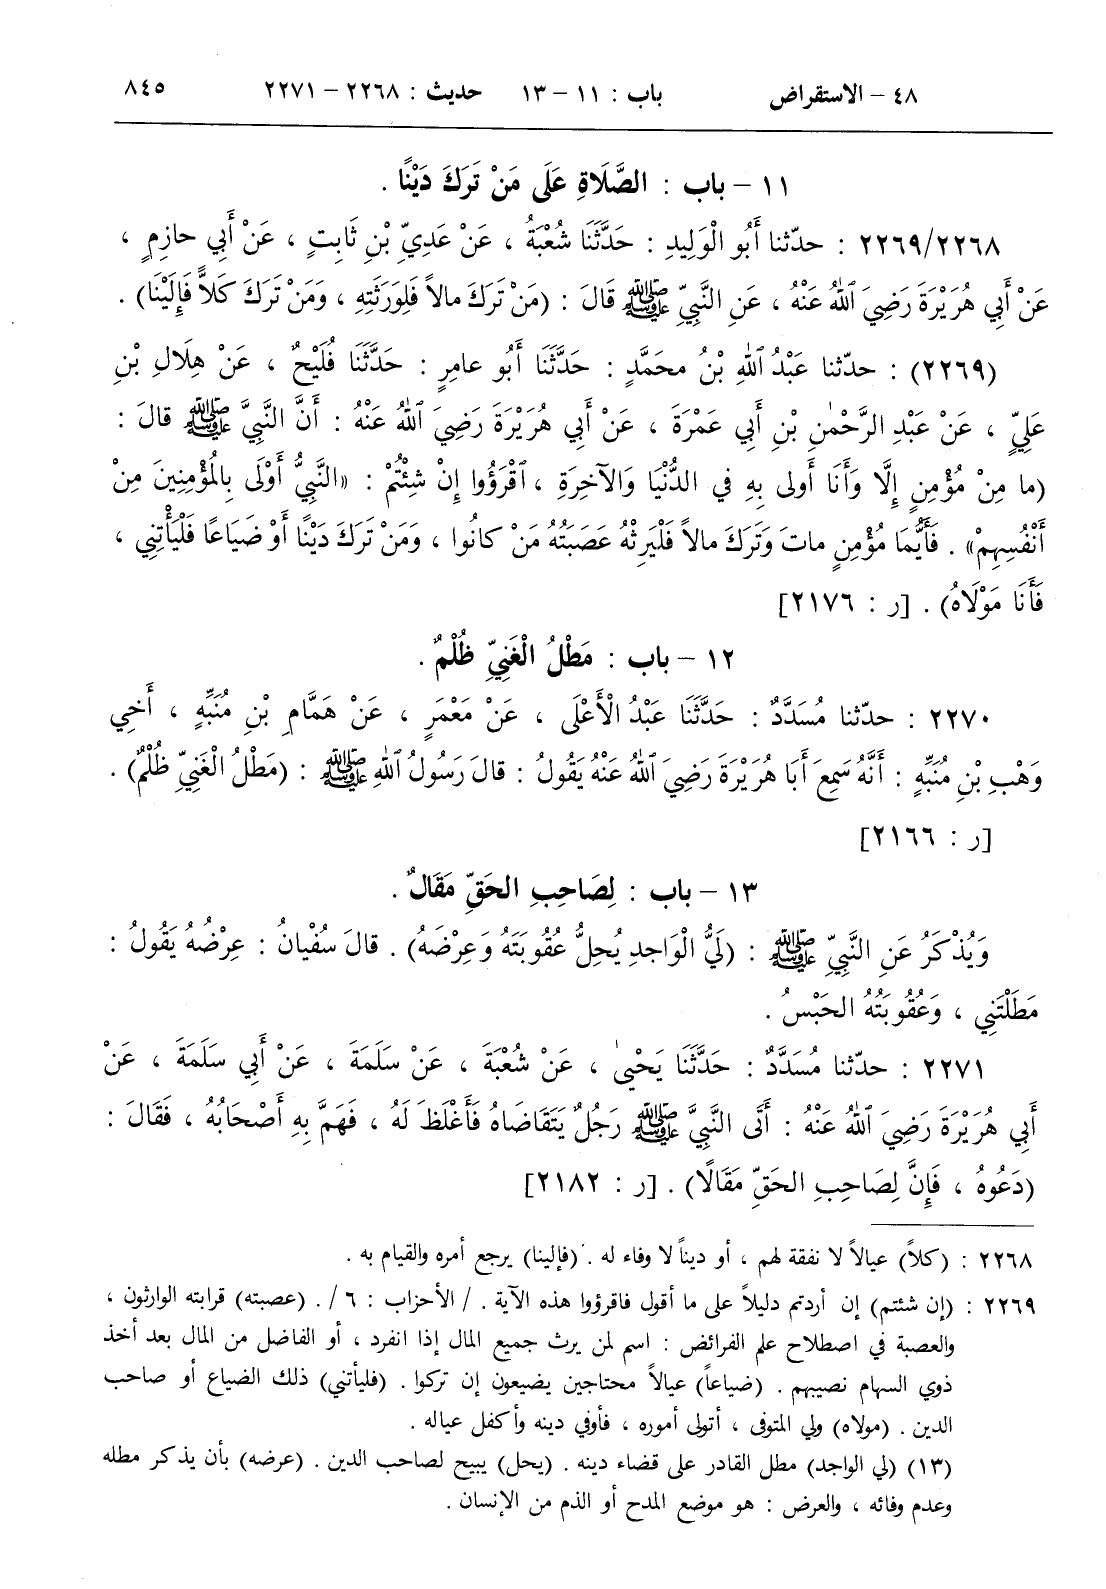 ٤٨ – الاستقراض باب : ١١ – ١٣ حديث : ٢٢٦٨ – ٢٢٧١ ٨٤٥
١١ – باب : الصَّلَاةِ عَلَى مَنْ تَرَكَ دَيْنًا .
٢٢٦٩/٢٢٦٨ : حدّثنا أَبُو الْوَلِيدِ : حَدَّثَنَا شُعْبَةُ ، عَنْ عَدِيِّ بْنِ ثَابِتٍ ، عَنْ أَبِي حازِمٍ ،
عَنْ أَبِي هُرَيْرَةَ رَضِيَ ٱللهُ عَنْهُ ، عَنِ النَّبِيِّ ﷺ قَالَ : (مَنْ تَرَكَ مالاً فَلِوَرَثَتِهِ ، وَمَنْ تَرَكَ كَلاًّ فَإِلَيْنَا) .
(٢٢٦٩) : حدّثنا عَبْدُ ٱللهِ بْنُ محَمَّدٍ : حَدَّثَنَا أَبُو عامِرٍ : حَدَّثَنَا فُلَيْحٌ ، عَنْ هِلَالِ بْنِ
عَلِيٍّ ، عَنْ عَبْدِ الرَّحْمٰنِ بْنِ أَبِي عَمْرَةَ ، عَنْ أَبِي هُرَيْرَةَ رَضِيَ ٱللهُ عَنْهُ : أَنَّ النَّبِيَّ ﷺ قالَ :
(ما مِنْ مُؤْمِنٍ إِلَّا وَأَنَا أَولى بِهِ في الدُّنْيَا وَالآخِرَةِ ، ٱقْرَؤُوا إِنْ شِئْتُمْ : «النَّبِيُّ أَوْلَى بِالْمُؤْمِنِينَ مِنْ
أَنْفُسِهِمْ» . فَأَيُّمَا مُؤْمِنٍ ماتَ وَتَرَكَ مالاً فَلْيَرِثْهُ عَصَبَتُهُ مَنْ كانُوا ، وَمَنْ تَرَكَ دَيْنًا أَوْ ضَيَاعًا فَلْيَأْتِنِي ،
فَأَنَا مَوْلَاهُ) . [ر : ٢١٧٦]
١٢ – باب : مَطْلُ الْغَنِيِّ ظُلْمٌ .
٢٢٧٠ : حدّثنا مُسَدَّدٌ : حَدَّثَنَا عَبْدُ الْأَعْلَى ، عَنْ مَعْمَرٍ ، عَنْ هَمَّامِ بْنِ مُنَبِّهٍ ، أَخِي
وَهْبِ بْنِ مُنَبِّهٍ : أَنَّهُ سَمِعَ أَبَا هُرَيْرَةَ رَضِيَ ٱللهُ عَنْهُ يَقُولُ : قالَ رَسُولُ ٱللهِ ﷺ : (مَطْلُ الْغَنِيِّ ظُلْمٌ) .
[ر : ٢١٦٦]
١٣ – باب : لِصَاحِبِ الحَقِّ مَقَالٌ .
وَيُذْكَرُ عَنِ النَّبِيِّ ﷺ : (لَيُّ الْوَاجِدِ يُحِلُّ عُقُوبَتَهُ وَعِرْضَهُ) . قالَ سُفْيَانُ : عِرْضُهُ يَقُولُ :
مَطَلْتَنِي ، وَعُقُوبَتُهُ الحَبْسُ .
٢٢٧١ : حدّثنا مُسَدَّدٌ : حَدَّثَنَا يَحْيىٰ ، عَنْ شُعْبَةَ ، عَنْ سَلَمَةَ ، عَنْ أَبِي سَلَمَةَ ، عَنْ
أَبِي هُرَيْرَةَ رَضِيَ ٱللهُ عَنْهُ : أَتَى النَّبِيَّ ﷺ رَجُلٌ يَتَقَاضَاهُ فَأَغْلَظَ لَهُ ، فَهَمَّ بِهِ أَصْحَابُهُ ، فَقَالَ :
(دَعُوهُ ، فَإِنَّ لِصَاحِبِ الحَقِّ مَقَالًا) . [ر : ٢١٨٢]
٢٢٦٨ : (كلاً) عيالاً لا نفقة لهم ، أو ديناً لا وفاء له . (فإلينا) يرجع أمره والقيام به .
٢٢٦٩ : (إن شئتم) إن أردتم دليلاً على ما أقول فاقرؤوا هذه الآية . / الأحزاب : ٦ /. (عصبته) قرابته الوارثون ،
والعصبة في اصطلاح علم الفرائض : اسم لمن يرث جميع المال إذا انفرد ، أو الفاضل من المال بعد أخذ
ذوي السهام نصيبهم . (ضياعاً) عيالاً محتاجين يضيعون إن تركوا . (فليأتني) ذلك الضياع أو صاحب
الدين . (مولاه) ولي المتوفى ، أتولى أموره ، فأوفي دينه وأكفل عياله .
(١٣) (لي الواجد) مطل القادر على قضاء دينه . (يحل) يبيح لصاحب الدين . (عرضه) بأن يذكر مطله
وعدم وفائه ، والعرض : هو موضع المدح أو الذم من الإنسان .